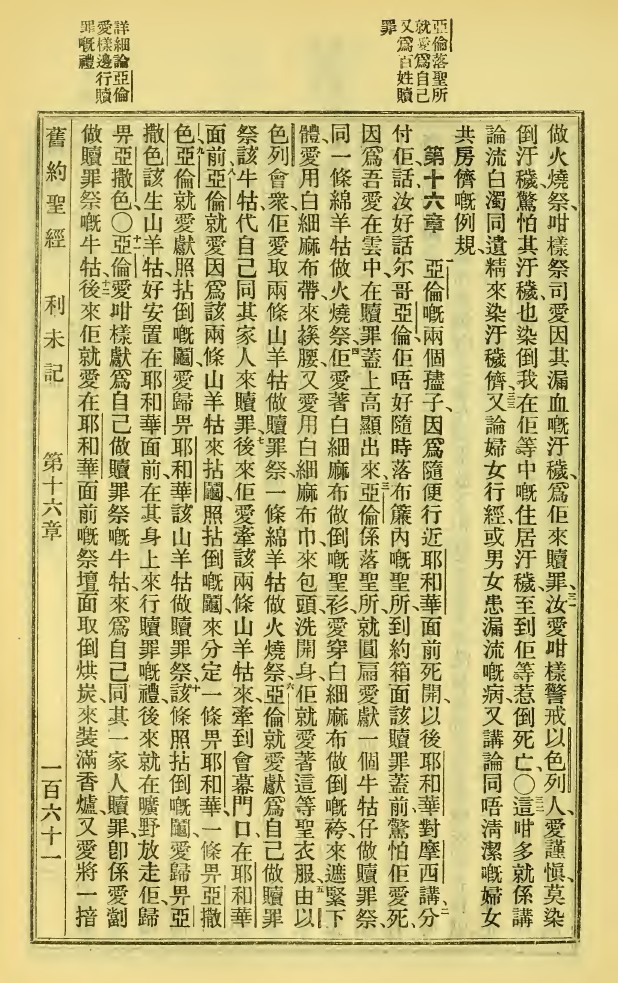 亞倫落聖所
就愛爲自己
又爲百姓贖
罪
詳細論亞倫
愛樣邊行贖
罪嘅禮
做火燒祭、咁樣祭司愛因其漏血嘅汙穢、爲佢來贖罪、三一汝愛咁樣警戒以色列人、愛謹愼、莫染
倒汙穢、驚怕其汙穢、也染倒我在佢等中嘅住居汙穢、至到佢等惹倒死亡、〇三二這咁多就係講
論流白濁、同遺精來染汙穢儕、三三又論婦女行經、或男女患漏流嘅病、又講論同唔清潔嘅婦女
共房儕嘅例規、
第十六章 一亞倫嘅兩個孻子、因爲隨便行近耶和華面前死開、以後耶和華對摩西講、二分
付佢話、汝好話尔哥亞倫、佢唔好隨時落布簾內嘅聖所、到約箱面該贖罪蓋前、驚怕佢愛死、
因爲吾愛在雲中在贖罪蓋上高顯出來、三亞倫係落聖所、就圓扁愛獻一個牛牯仔做贖罪祭、
同一條綿羊牯做火燒祭、四佢愛著白細麻布做倒嘅聖衫、愛穿白細麻布做倒嘅袴來遮緊下
體、愛用白細麻布帶來緓腰、又愛用白細麻布巾來包頭、洗開身、佢就愛著這等聖衣服、五由以
色列會衆、佢愛取兩條山羊牯做贖罪祭、一條綿羊牯做火燒祭、六亞倫就愛獻爲自己做贖罪
祭該牛牯、代自己同其家人來贖罪、七後來佢愛牽該兩條山羊牯來、牽到會幕門口、在耶和華
面前、八亞倫就愛因爲該兩條山羊牯來拈鬮、照拈倒嘅鬮來分定、一條畀耶和華、一條畀亞撒
色、九亞倫就愛獻照拈倒嘅鬮愛歸畀耶和華該山羊牯做贖罪祭、十該條照拈倒嘅鬮、愛歸畀亞
撒色該生山羊牯、好安置在耶和華面前、在其身上來行贖罪嘅禮、後來就在曠野放走佢、歸
畀亞撒色、〇十一亞倫愛咁樣獻爲自己做贖罪祭嘅牛牯、來爲自己同其一家人贖罪、卽係愛劏
做贖罪祭嘅牛牯、十二後來佢就愛在耶和華面前嘅祭壇面取倒烘炭來裝滿香爐、又愛將一揞
舊約聖經 利未記 第十六章 一百六十一